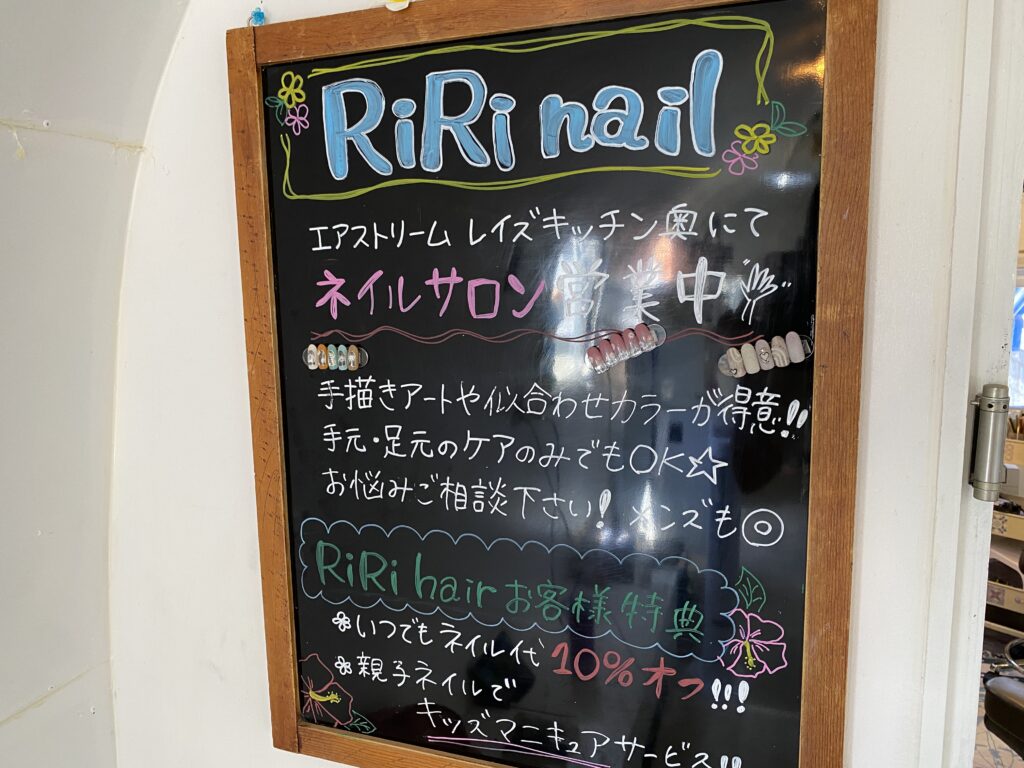 RiRi nail
エアストリーム レイズキッチン奥にて
ネイルサロン営業中
手描きアートや似合わせカラーが得意!!
手元・足元のケアのみでもOK☆
お悩みご相談下さい! メンズも◎
RiRi hair お客様特典
いつでもネイル代 10%オフ!!!
親子ネイルで
キッズマニキュアサービス!!